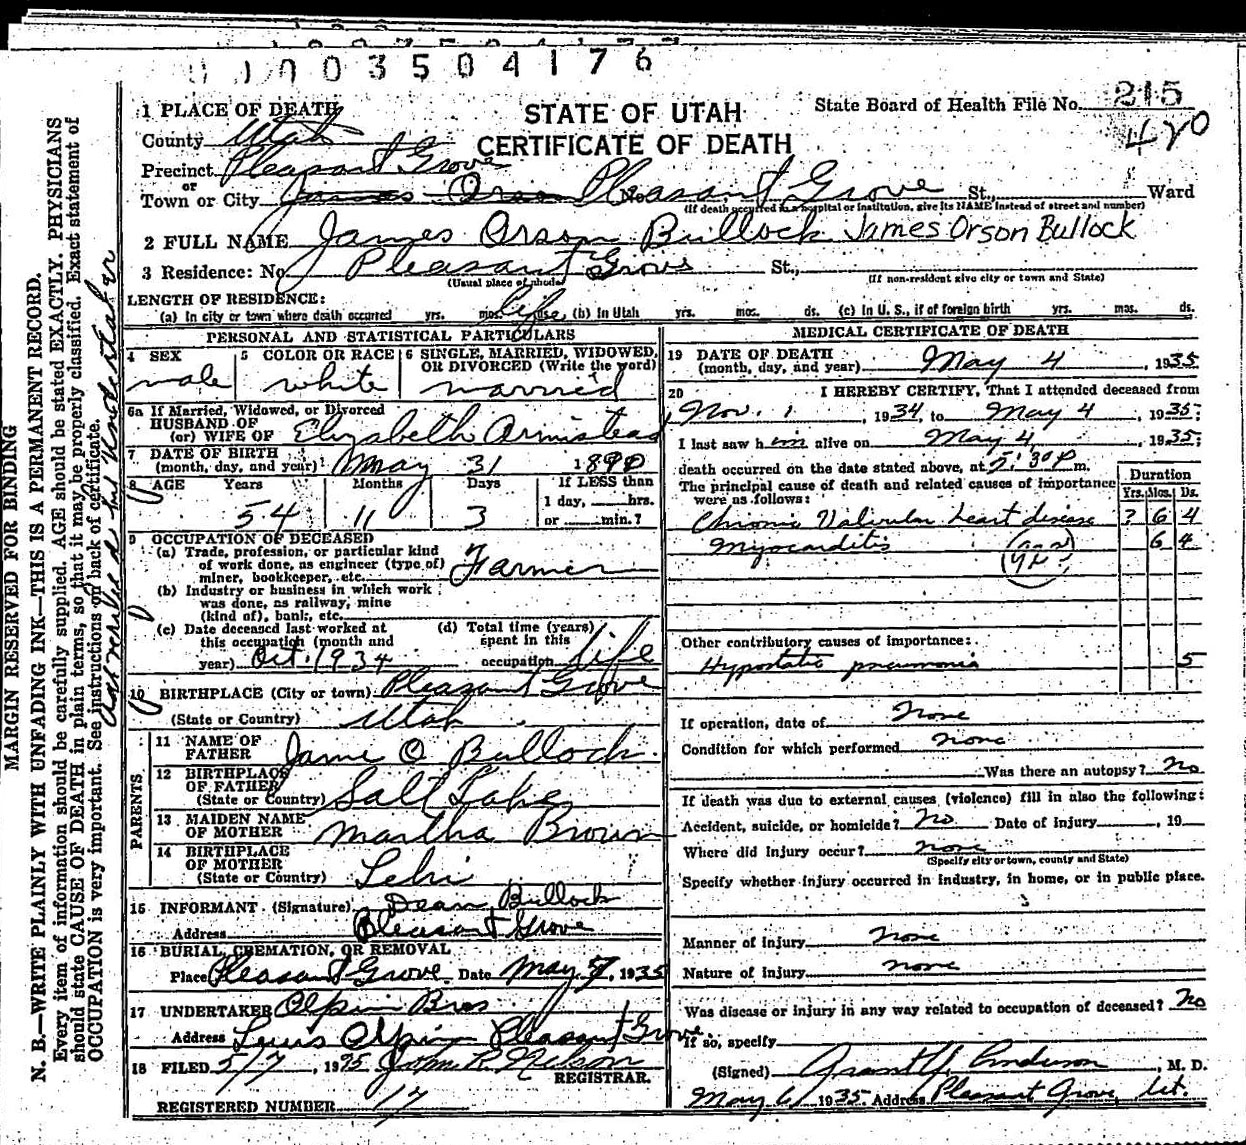 0 1 0 0 3 5 0 4 1 7 6
STATE OF UTAH
CERTIFICATE OF DEATH
State Board of Health File No. 215
420
1 PLACE OF DEATH
County Utah
Precinct Pleasant Grove
or
Town or City James Orson No. Pleasant Grove St., Ward
(If death occurred in a hospital or institution, give its NAME instead of street and number)
2 FULL NAME James Orson Bullock James Orson Bullock
3 Residence: No. Pleasant Grove St.,
(Usual place of abode) (If non-resident give city or town and State)
LENGTH OF RESIDENCE:
(a) In city or town where death occurred yrs. mos. life ds. (b) In Utah yrs. mos. ds. (c) In U. S., if of foreign birth yrs. mos. ds.
PERSONAL AND STATISTICAL PARTICULARS
4 SEX
male
5 COLOR OR RACE
white
6 SINGLE, MARRIED, WIDOWED, OR DIVORCED (Write the word)
married
6a If Married, Widowed, or Divorced
HUSBAND OF
(or) WIFE OF Elizabeth Armistead
7 DATE OF BIRTH
(month, day, and year) May 31 1880
8 AGE Years Months Days If LESS than
1 day, hrs.
54 11 3 or min.?
9 OCCUPATION OF DECEASED
(a) Trade, profession, or particular kind
of work done, as engineer (type of)
miner, bookkeeper, etc. Farmer
(b) Industry or business in which work
was done, as railway, mine
(kind of), bank, etc.
(c) Date deceased last worked at
this occupation (month and
year) Oct. 1934
(d) Total time (years)
spent in this
occupation life
10 BIRTHPLACE (City or town) Pleasant Grove
(State or Country) Utah
PARENTS
11 NAME OF
FATHER Jame O Bullock
12 BIRTHPLACE
OF FATHER
(State or Country) Salt Lake
13 MAIDEN NAME
OF MOTHER Martha Brown
14 BIRTHPLACE
OF MOTHER
(State or Country) Lehi
15 INFORMANT (Signature) Dean Bullock
Address Pleasant Grove
16 BURIAL, CREMATION, OR REMOVAL
Place Pleasant Grove Date May 7, 1935
17 UNDERTAKER Olpin Bros
Address Lewis Olpin Pleasant Grove
18 FILED 5/7, 1935 John R. Nelson
REGISTRAR.
REGISTERED NUMBER 17
MEDICAL CERTIFICATE OF DEATH
19 DATE OF DEATH
(month, day, and year) May 4, 1935
20 I HEREBY CERTIFY, That I attended deceased from
Nov. 1, 1934 to May 4, 1935;
I last saw him alive on May 4, 1935;
death occurred on the date stated above, at 5:30 P m.
The principal cause of death and related causes of importance
were as follows:
Duration
Yrs. Mos. Ds.
Chronic Valvular heart disease ? 6 4
Myocarditis 6 4
Other contributory causes of importance:
Hypostatic pneumonia 5
If operation, date of none
Condition for which performed none
Was there an autopsy? No
If death was due to external causes (violence) fill in also the following:
Accident, suicide, or homicide? No Date of injury , 19
Where did injury occur? none
(Specify city or town, county and State)
Specify whether injury occurred in industry, in home, or in public place.
Manner of Injury none
Nature of Injury none
Was disease or injury in any way related to occupation of deceased? No
If so, specify
(Signed) Grant Y. Anderson, M. D.
May 6, 1935 Address Pleasant Grove, Ut.
MARGIN RESERVED FOR BINDING
N. B.—WRITE PLAINLY WITH UNFADING INK—THIS IS A PERMANENT RECORD.
Every item of information should be carefully supplied. AGE should be stated EXACTLY. PHYSICIANS
should state CAUSE OF DEATH in plain terms, so that it may be properly classified. Exact statement of
OCCUPATION is very important. See instructions on back of certificate.